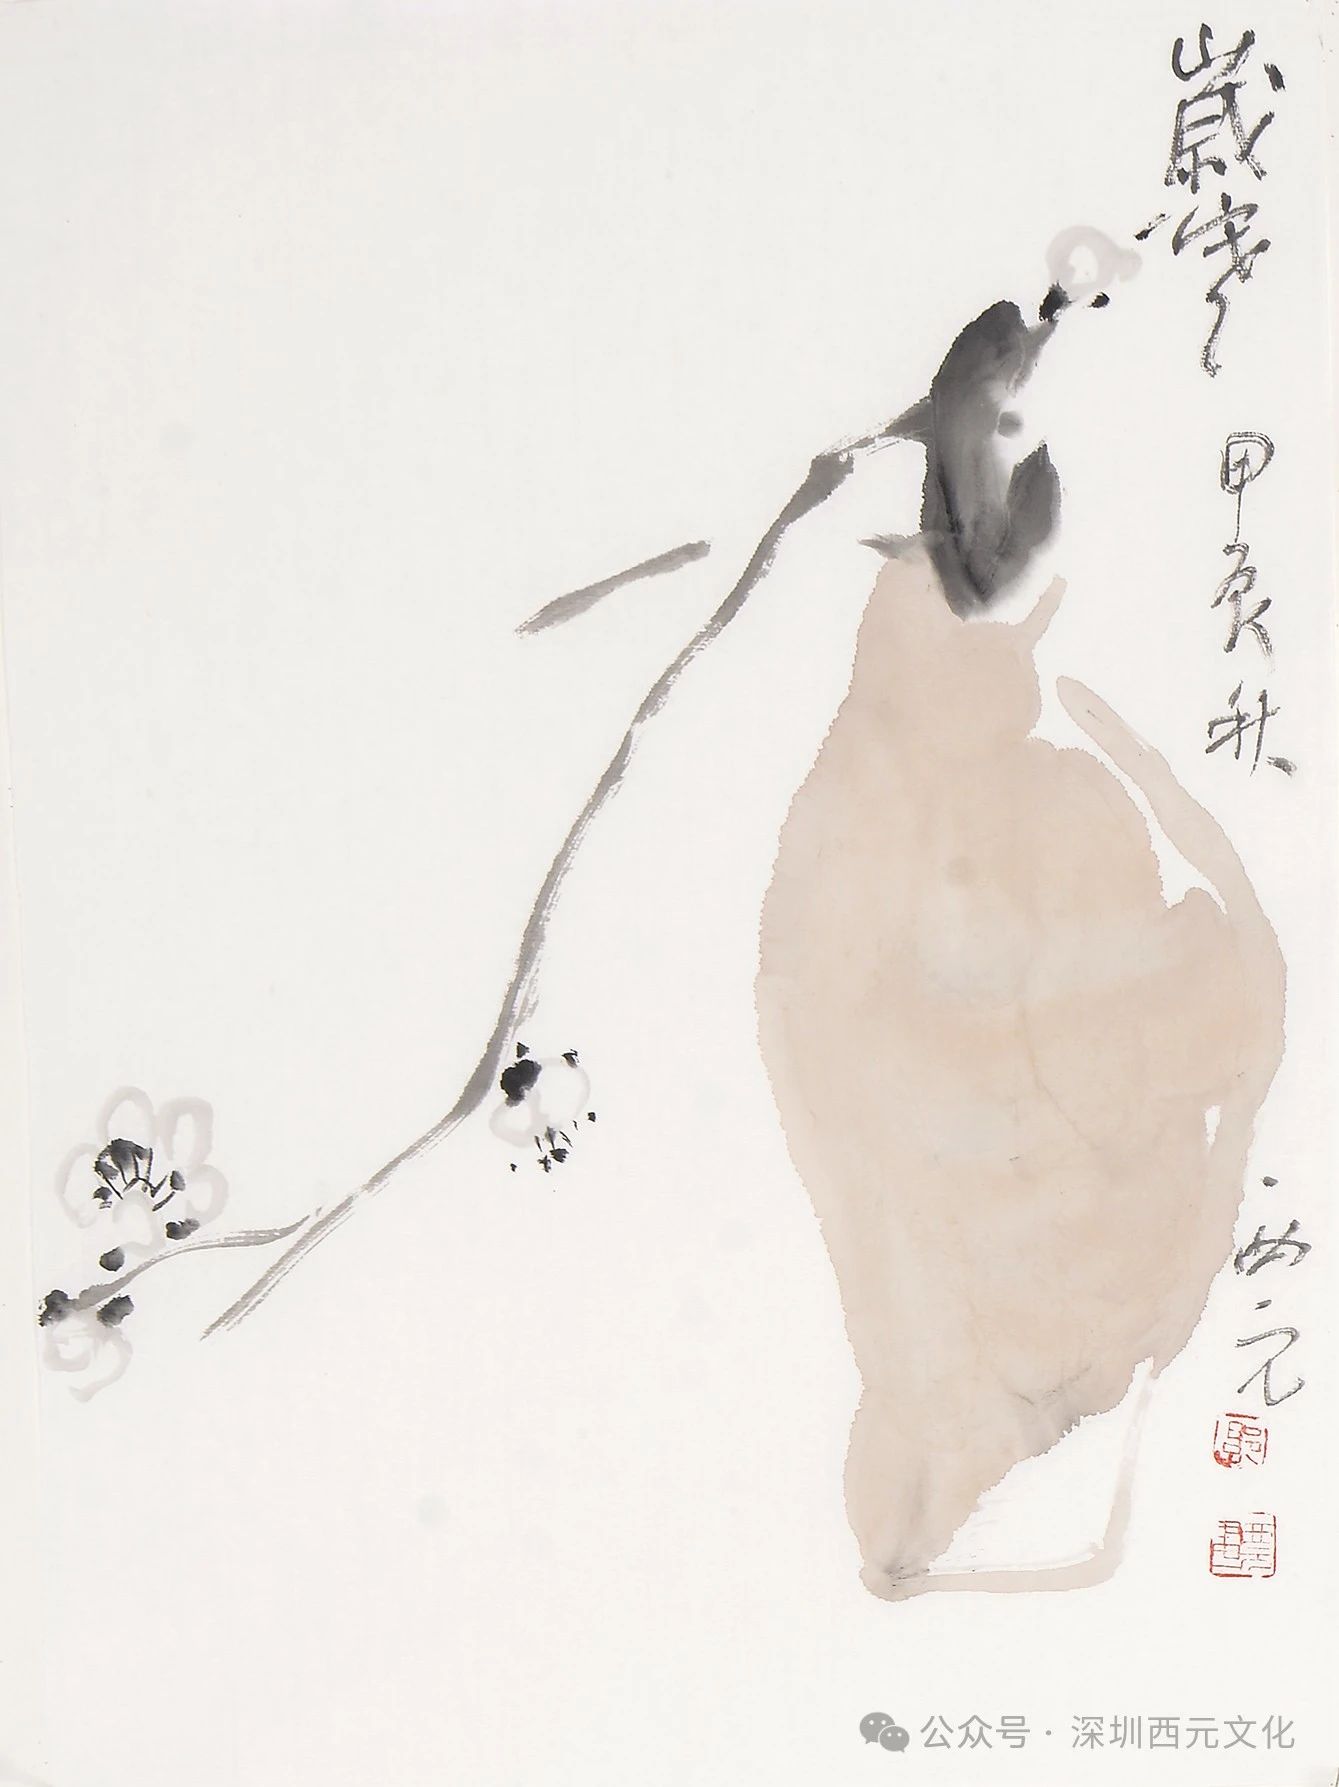 歲寒
甲辰秋
西元
公众号 · 深圳西元文化